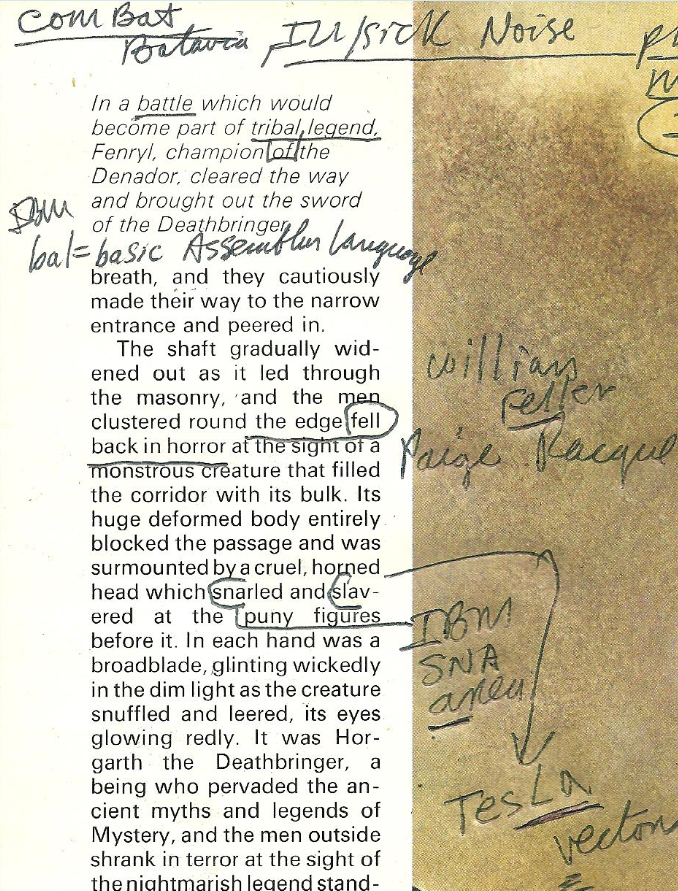 ComBat
Batavia, Ill/sick Noise
In a battle which would
become part of tribal legend,
Fenryl, champion of the
Denador, cleared the way
and brought out the sword
of the Deathbringer.
IBM
bal=basic Assembler Language
breath, and they cautiously
made their way to the narrow
entrance and peered in.
The shaft gradually wid-
ened out as it led through
the masonry, and the men
clustered round the edge fell
back in horror at the sight of a
monstrous creature that filled
the corridor with its bulk. Its
huge deformed body entirely
blocked the passage and was
surmounted by a cruel, horned
head which snarled and slav-
ered at the puny figures
before it. In each hand was a
broadblade, glinting wickedly
in the dim light as the creature
snuffled and leered, its eyes
glowing redly. It was Hor-
garth the Deathbringer, a
being who pervaded the an-
cient myths and legends of
Mystery, and the men outside
shrank in terror at the sight of
the nightmarish legend stand-
William
Feller
Paige Racque
IBM
SNA
area
Tesla
vectors